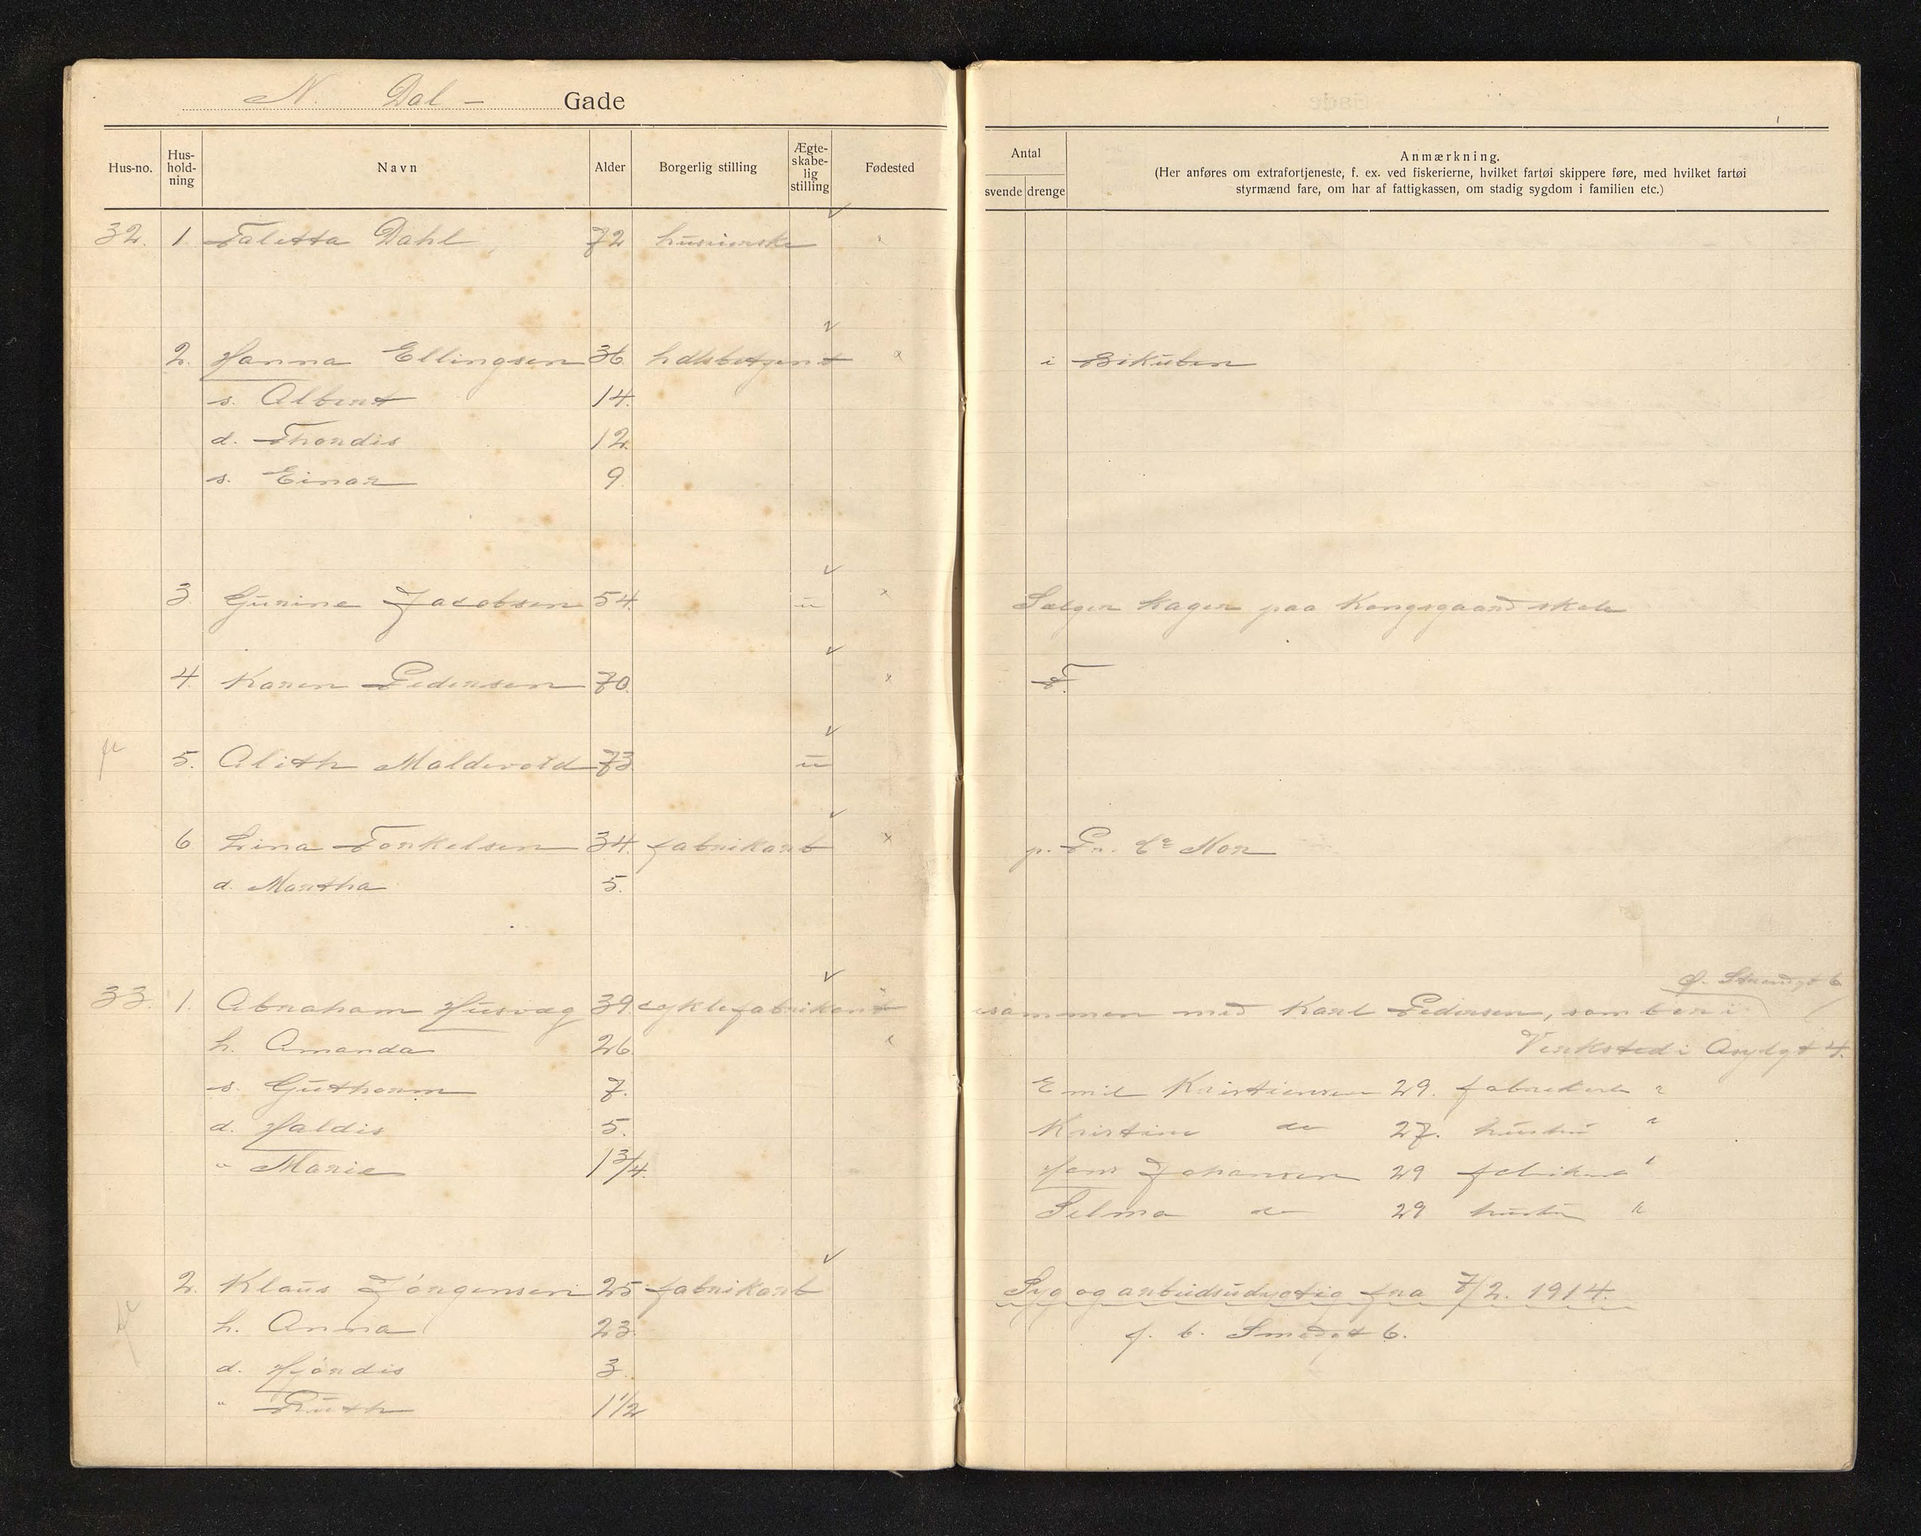 N. Dal - Gade
Hus-no. Hus-hold-ning Navn Alder Borgerlig stilling Ægte-skabe-lig stilling Fødested
32. 1. Taletta Dahl 72
2. Hanna Ellingsen 36
s. Albert 14.
d. Thordis 12.
s. Einar 9.
3. Gurine Jacobsen 54. u
4. Karen Pedersen 70.
5. Alith Maldevold 73. u
6 Lina Torkelsen 34. fabrikarb
d. Martha 5.
33. 1. Abraham Husvæg 39. cyklefabrikant
h. Amanda 26.
s. Guthorm 7.
d. Haldis 5.
" Marie 1 3/4.
2. Klaus Jørgensen 25. fabrikarb
h. Anna 23.
d. Hjørdis 3.
" Ruth 1 1/2
Gade
Antal
svende drenge
Anmærkning.
(Her anføres om extrafortjeneste, f. ex. ved fiskerierne, hvilket fartøi skippere føre, med hvilket fartøi
styrmænd fare, om har af fattigkassen, om stadig sygdom i familien etc.)
i Bikuben
Sælger kager paa Kongsgaard skole
F.
p. Pr. Nor
f. Strandgt 6
sammen med Karl Pedersen, som bor i
Verksted i 4.
Emil Kristiensen 29. "
Kristine do 27. hustru "
Hans Johansen 29 "
Selma do 29 hustru "
Syg og arbeidsudygtig fra 7/2. 1914.
f. b. Smedgt 6.